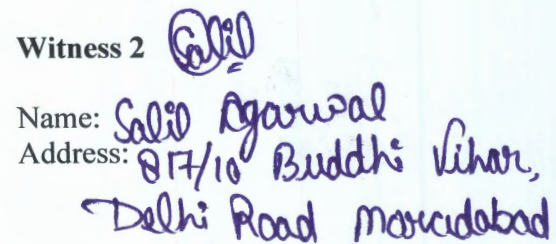 Witness 2 Salil
Name: Salil Agarwal
Address: 817/10 Buddhi Vihar,
Delhi Road Moradabad